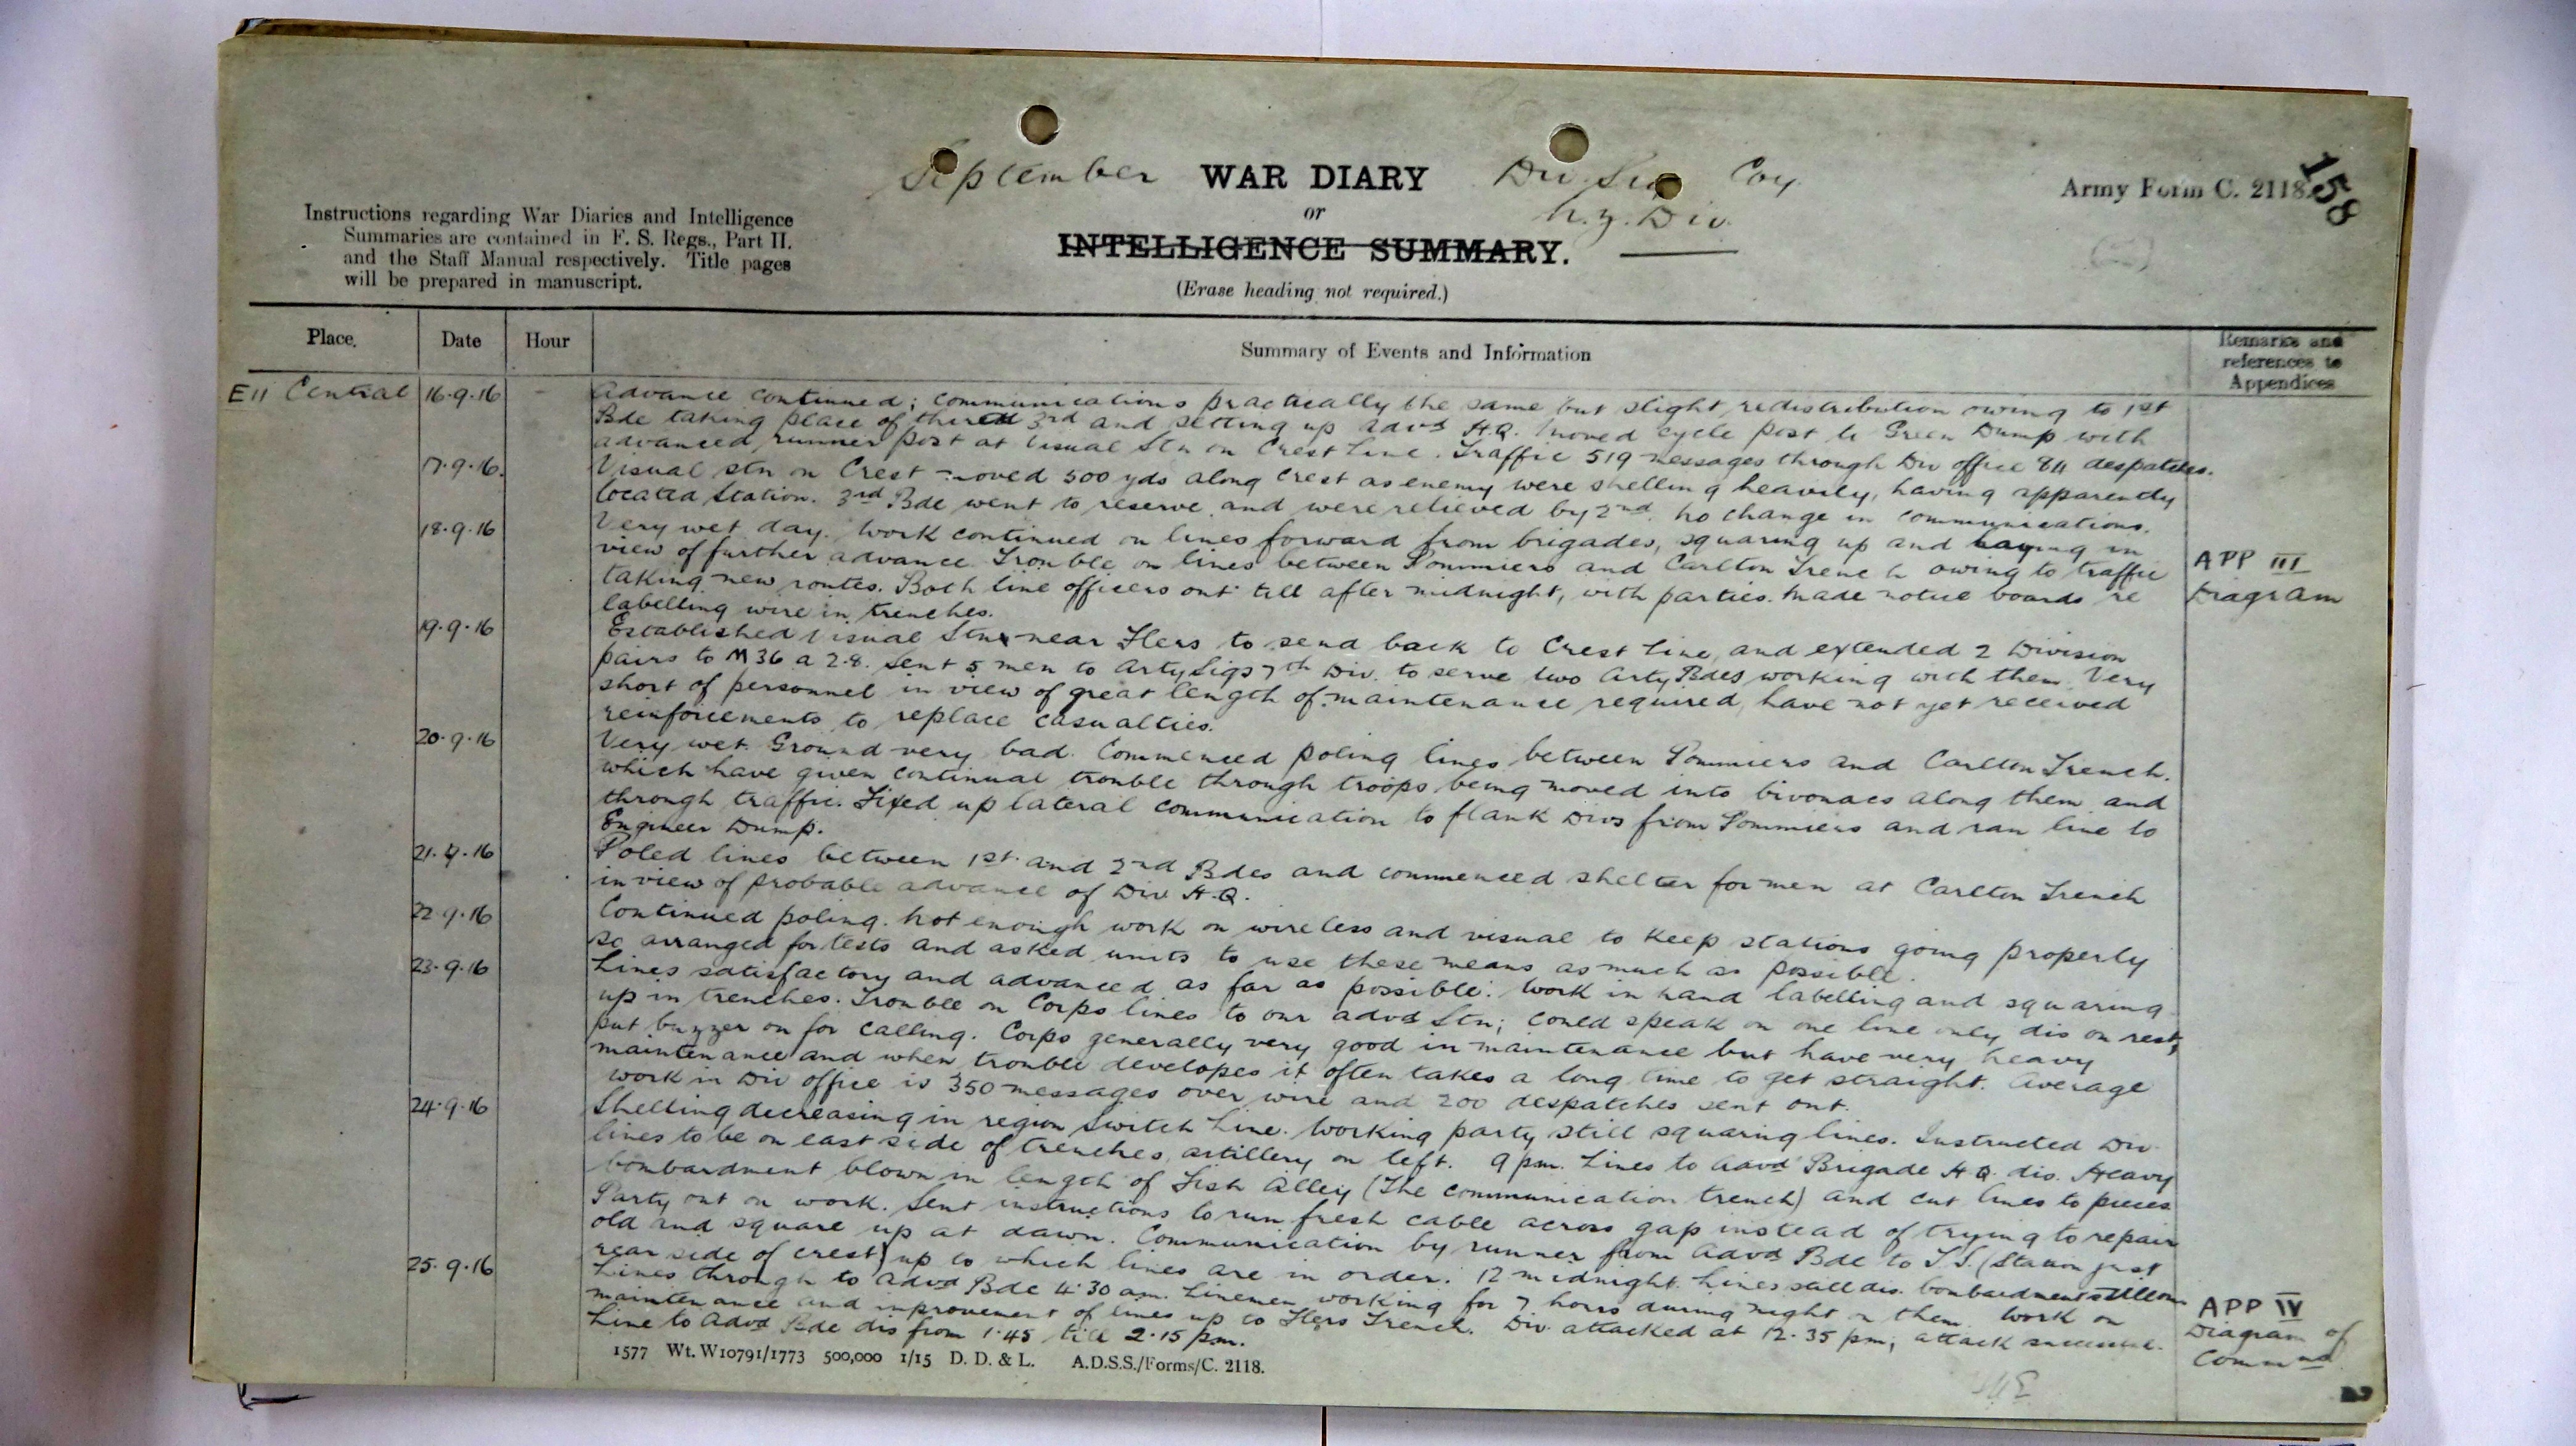 September WAR DIARY Div. Sig. Coy.
or N.Z. Div.
INTELLIGENCE SUMMARY.
(Erase heading not required.)
Army Form C. 2118.
158
Instructions regarding War Diaries and Intelligence
Summaries are contained in F. S. Regs., Part II.
and the Staff Manual respectively. Title pages
will be prepared in manuscript.
Place. Date Hour Summary of Events and Information Remarks and references to Appendices
E11 Central 16.9.16 Advance continued; communications practically the same but slight redistribution owing to 1st
Bde taking place of 3rd and setting up advd H.Q. Moved cycle post to Green Dump with
advanced runner post at Visual Stn on Crest Line. Traffic 519 messages through Div office 84 despatches.
17.9.16. Visual stn on Crest moved 500 yds along crest as enemy were shelling heavily, having apparently
located Station. 3rd Bde went to reserve and were relieved by 2nd. No change in communications.
18.9.16 Very wet day. Work continued on lines forward from brigades, squaring up and laying in
view of further advance. Trouble on lines between Pommiers and Carlton Trench owing to traffic
taking new routes. Both line officers out till after midnight, with parties. Made notice boards re
labelling wire in trenches.
APP III
Diagram
19.9.16 Established Visual Stn near Flers to send back to Crest Line, and extended 2 Division
pairs to M36 a 2.8. Sent 5 men to Arty Sigs 7th Div. to serve two Arty Bdes working with them. Very
short of personnel in view of great length of maintenance required, have not yet received
reinforcements to replace casualties.
20.9.16 Very wet. Ground very bad. Commenced poling lines between Pommiers and Carlton Trench.
which have given continual trouble through troops being moved into bivouacs along them and
through traffic. Fixed up lateral communication to flank Divs from Pommiers and ran line to
Engineer Dump.
21.9.16 Poled lines between 1st and 2nd Bdes and commenced shelter for men at Carlton Trench
in view of probable advance of Div H.Q.
22.9.16 Continued poling. Not enough work on wireless and visual to keep stations going properly
so arranged for tests and asked units to use these means as much as possible.
23.9.16 Lines satisfactory and advanced as far as possible. Work in hand labelling and squaring
up in trenches. Trouble on Corps lines to our advd Stn; could speak on one line only dis on rest,
put buzzer on for calling. Corps generally very good in maintenance but have very heavy
maintenance and when trouble developes it often takes a long time to get straight. Average
work in Div office is 350 messages over wire and 200 despatches sent out.
24.9.16 Shelling decreasing in region Switch Line. Working party still squaring lines. Instructed Div
lines to be on east side of trenches, artillery on left. 9 pm. Lines to Advd Brigade H.Q. dis. Heavy
bombardment blown in length of Fish Alley (The communication trench) and cut lines to pieces.
Party out on work. Sent instructions to run fresh cable across gap instead of trying to repair
old and square up at dawn. Communication by runner from Advd Bde to T.S. (Station just
rear side of crest) up to which lines are in order. 12 midnight. Lines still dis. bombardment still on
25.9.16 Lines through to Advd Bde 4.30 am. Linemen working for 7 hours during night on them. Work on
maintenance and improvement of lines up to Flers Trench. Div. attacked at 12.35 pm, attack successful.
Line to Advd Bde dis from 1.45 till 2.15 pm.
APP IV
Diagram of
Commns
1577 Wt. W10791/1773 500,000 1/15 D. D. & L. A.D.S.S./Forms/C. 2118.